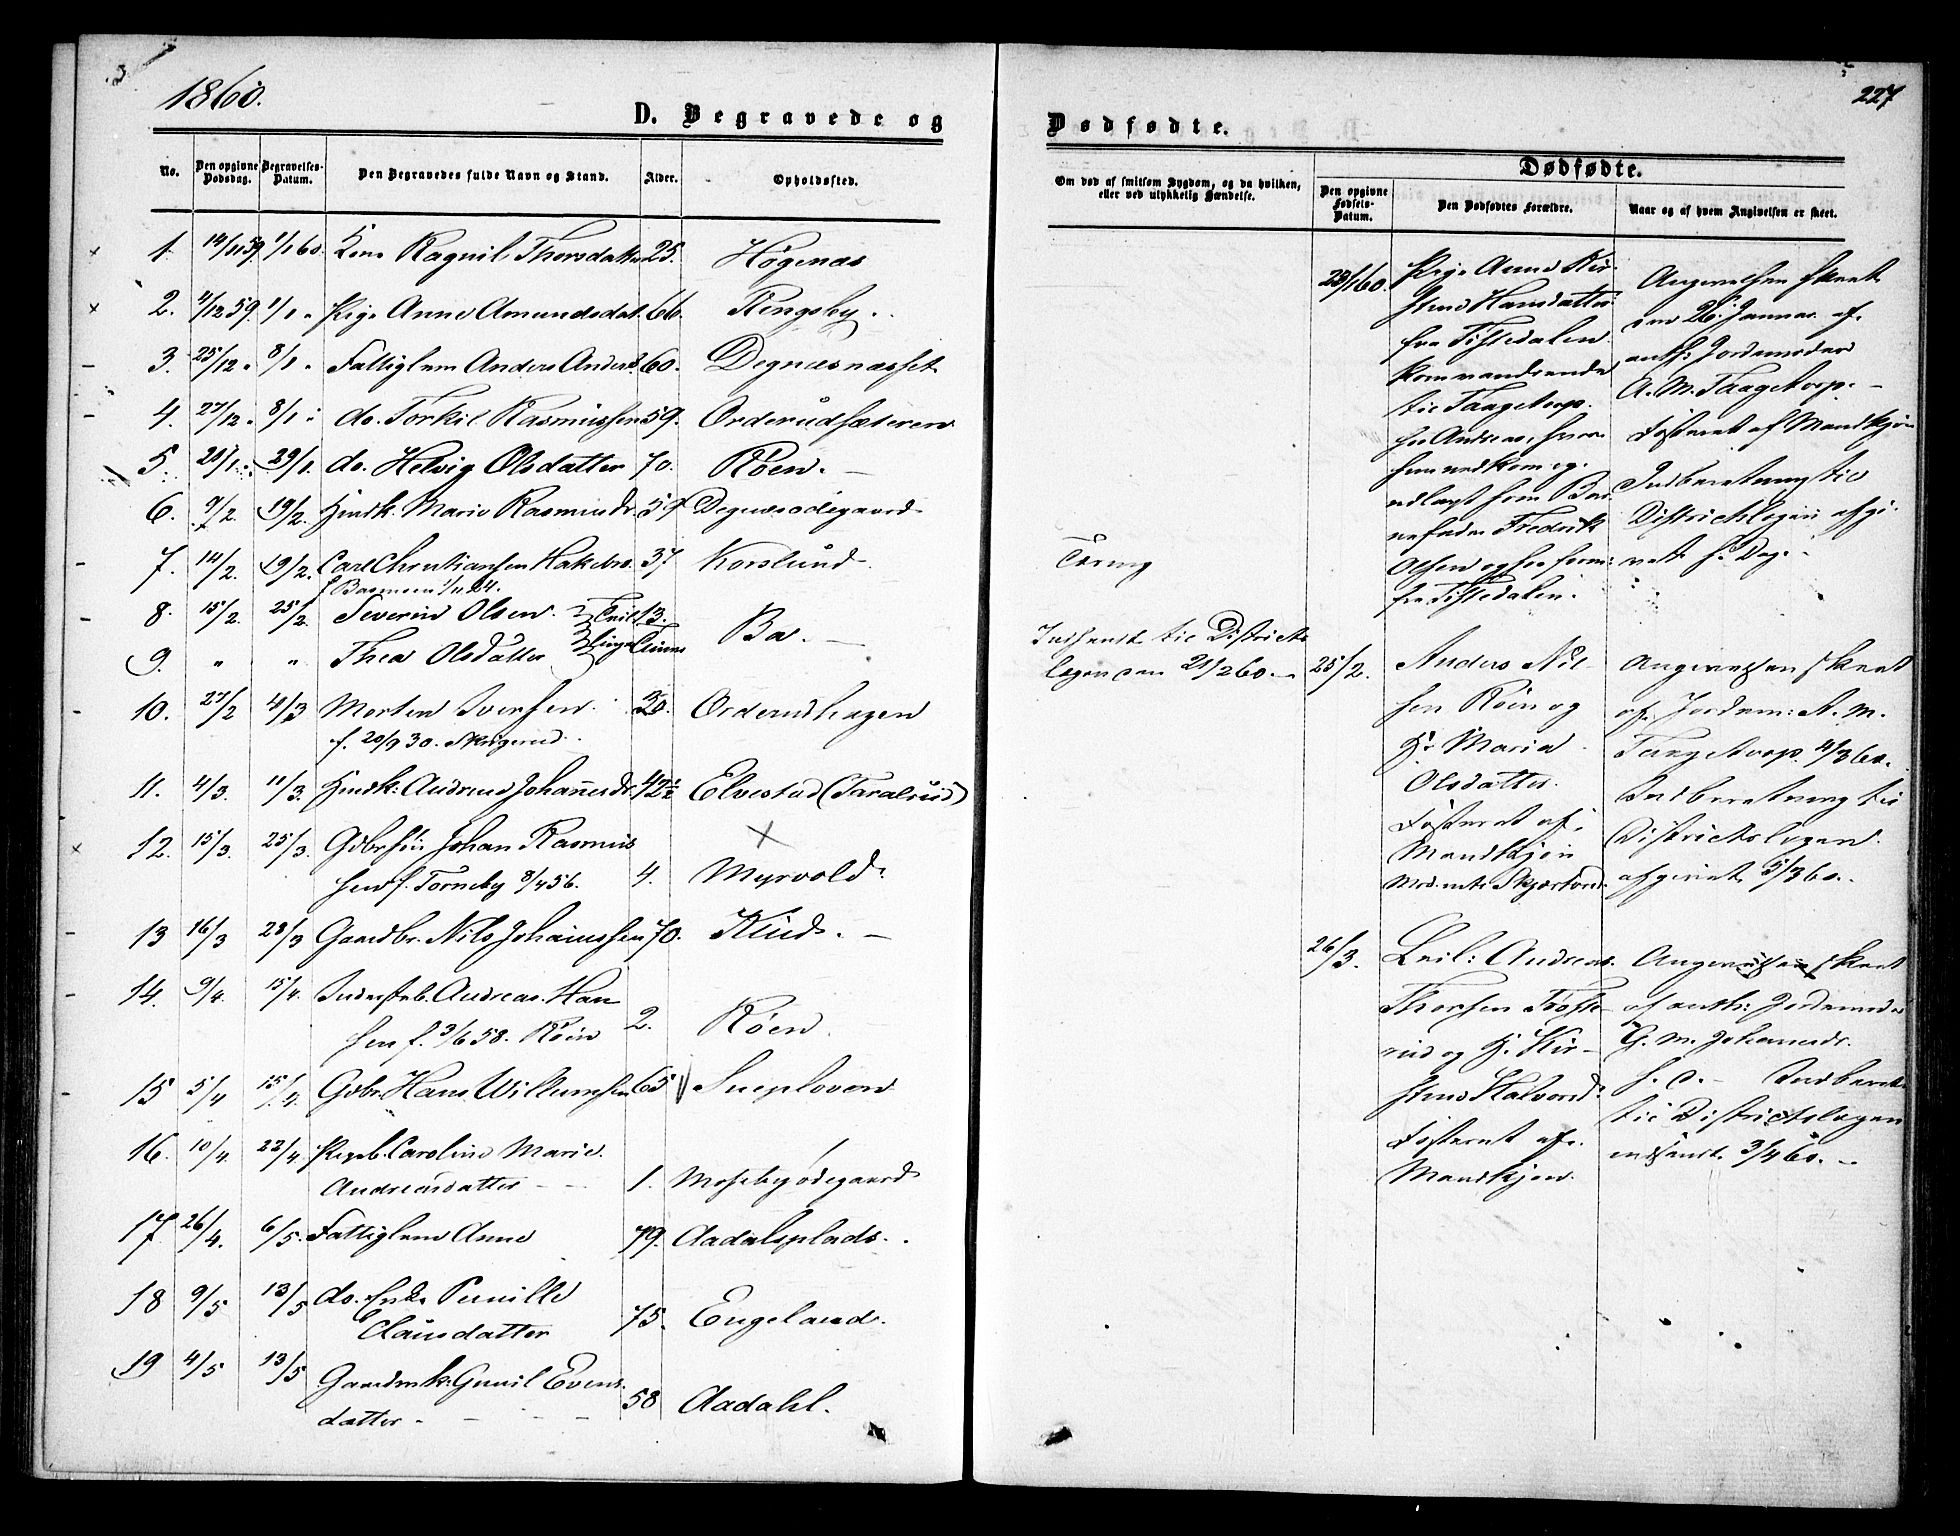 1860.
227
D. Begravede og
Dødfødte.
No.
Den opgivne Dødsdag.
Begravelses-Datum.
Den Begravedes fulde Navn og Stand.
Alder.
Opholdssted.
Om død af smitsom Sygdom, og da hvilken, eller ved ulykkelig Hændelse.
Dødfødte.
Den opgivne Fødsels-Datum.
Den Dødfødtes Forældre.
Naar og af hvem Angivelsen er skeet.
1. 14/11 59. 1/1 60. Kone Ragnil Thorsdatter 25. Høgenæs
2. 4/12 59. 1/1 " Pige Anne Amundsdat. 66. Ringsby.
3. 25/12 " 8/1 " Fattiglem Anders Anders. 60. Degnæsnæsset
4. 27/12 " 8/1 " do. Torkil Rasmussen 59. Orderudsæteren
5. 20/1 29/1. do. Helvig Olsdatter 70. Røen. —
6. 9/2. 19/2. Huusk. Marie Rasmusdr. 59 Degnæsødegaard
7. 14/2. 19/2. Carl Christiansen Hakebro. 37 Korslund
Tæring
8. 15/2. 25/2. Severin Olsen 13.
9. " " Thea Olsdatter
Tvillinge
Bø. —
Indsendt til Districts
lægen den 21/2 60. —
10. 27/2 4/3 Morten Iversen 30. Orderudhagen
f. 20/9 30. Skrigerud.
11. 4/3. 11/3. Huusk: Andrine Johannesdr. 42½ Elvestad (Taralrud)
12. 15/3. 25/3. Gdbrsøn Johan Rasmus
sen f. Torneby 8/4 56. 4. Myrvold
13 16/3 28/3 Gaardbr. Nils Johannessen 70. Kind. —
14. 9/4. 15/4. Inderstb. Andreas Han
sen f. 3/6 58. Røen 2. Røen.
15 5/4 15/4. Gdbr. Hans Willumsen 65 Sneploven
16. 10/4. 22/4. Pigeb. Caroline Marie
Andreasdatter — — 1. Mosebyødegaard
17. 26/4. 6/5. Fattiglem Anne 79. Aadalsplads.
18 9/5 13/5 do. Enke Pernille
Clausdatter 75. Engeland.
19 4/5 13/5 Gaardmk. Gunil Evens
datter — 58 Aadahl.
23/1 60. Pige Anne Kir-
stine Hansdatter
fra Tistedalen
kom vandrende
til Taagetorp
Andreas, hvor
hun nedkom og
udlagt som Bar
nefader Fredrik
Olsen ogsaa
fra Tistedalen.
Angivelsen skeet
den 26. Januar af
auth: Jordemoder
A. M. Taagetorp. —
Fosteret af Mandkjøn
Indberetning til
Districtslægen afgi-
vet s. Dag. —
25/2. Anders Nil-
sen Røen og
H. Maria
Olsdatter.
Fosteret af
Mandkjøn
Angivelsen skeet
af Jordem: A. M.
Taagetorp 4/3 60.
Indberetning til
Districtslægen
afgivet 5/3 60. —
26/3. Leil: Andreas
Thorsen Toste-
rud og H. Kir-
stine Halvorsd.
Fosteret af
Mandkjøn.
Angivelsen skeet
af auth: Jordemoder
G. M. Johannesdr.
s. d. — Indberet.
til Districtslægen
indsendt 3/4 60. —